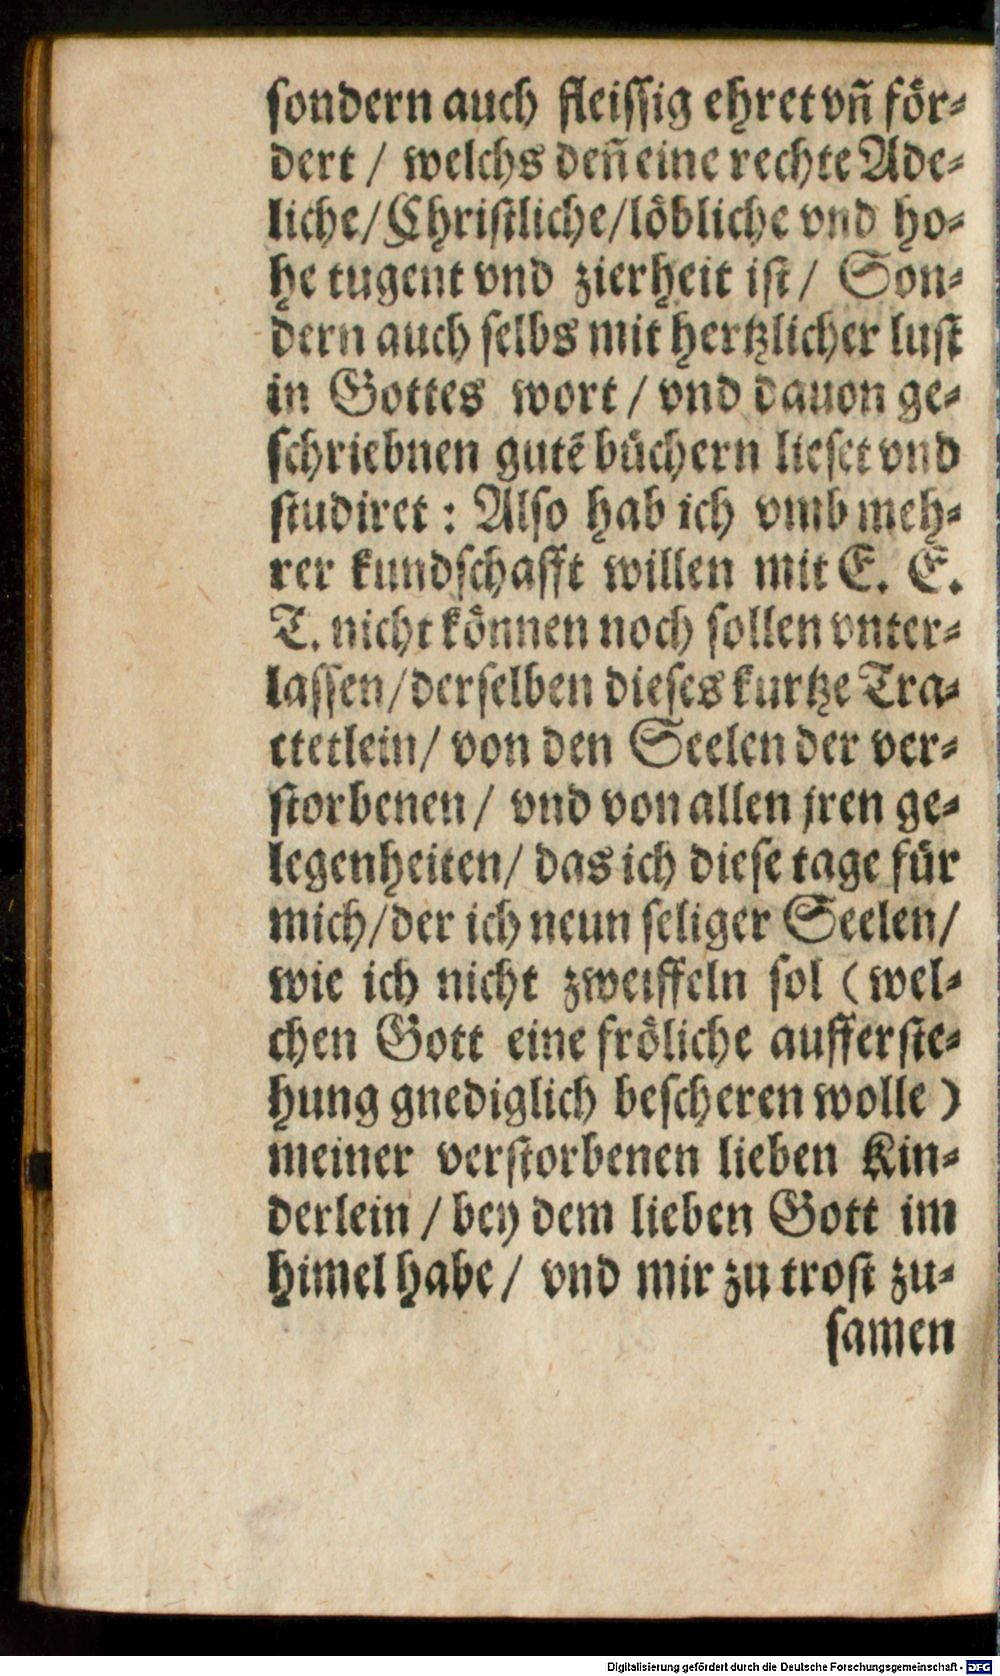 sondern auch fleissig ehret vñ för⸗
dert / welchs deñ eine rechte Ade⸗
liche/Christliche/löbliche vnd ho⸗
he tugent vnd zierheit ist/ Son⸗
dern auch selbs mit hertzlicher lust
in Gottes wort / vnd dauon ge⸗
schriebnen gutē büchern lieset vnd
studiret : Also hab ich vmb meh⸗
rer kundschafft willen mit E. E.
T. nicht können noch sollen vnter⸗
lassen/derselben dieses kurtze Tra⸗
ctetlein/ von den Seelen der ver⸗
storbenen/ vnd von allen jren ge⸗
legenheiten/ das ich diese tage für
mich/der ich neun seliger Seelen/
wie ich nicht zweiffeln sol (wel⸗
chen Gott eine fröliche aufferste⸗
hung gnediglich bescheren wolle)
meiner verstorbenen lieben Kin⸗
derlein / bey dem lieben Gott im
himel habe/ vnd mir zu trost zu⸗
samen
Digitalisierung gefördert durch die Deutsche Forschungsgemeinschaft - DFG